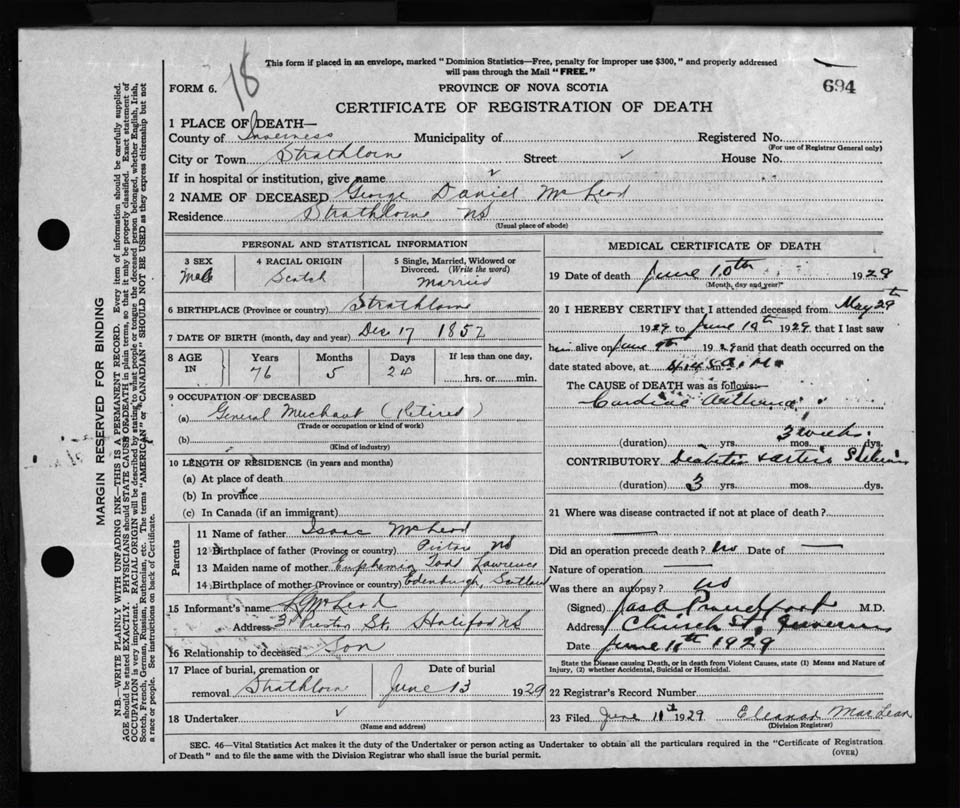 18
This form if placed in an envelope, marked "Dominion Statistics—Free, penalty for improper use $300," and properly addressed
will pass through the Mail "FREE."
FORM 6.
PROVINCE OF NOVA SCOTIA
694
CERTIFICATE OF REGISTRATION OF DEATH
1 PLACE OF DEATH—
County of Inverness Municipality of Registered No.
(For use of Registrar General only)
City or Town Strathlorne Street House No.
If in hospital or institution, give name
2 NAME OF DECEASED George Daniel McLeod
Residence Strathlorne NS
(Usual place of abode)
PERSONAL AND STATISTICAL INFORMATION
3 SEX
Male
4 RACIAL ORIGIN
Scotch
5 Single, Married, Widowed or
Divorced. (Write the word)
Married
6 BIRTHPLACE (Province or country) Strathlorne
7 DATE OF BIRTH (month, day and year) Dec 17 1852
8 AGE
IN
Years
76
Months
5
Days
24
If less than one day,
hrs. or min.
9 OCCUPATION OF DECEASED
(a) General Merchant (Retired)
(Trade or occupation or kind of work)
(b)
(Kind of industry)
10 LENGTH OF RESIDENCE (in years and months)
(a) At place of death
(b) In province
(c) In Canada (if an immigrant)
Parents
11 Name of father Isaac McLeod
12 Birthplace of father (Province or country) Pictou NS
13 Maiden name of mother Euphemia Todd Lawrence
14 Birthplace of mother (Province or country) Edenburgh, Scotland
15 Informant's name McLeod
Address St, Halifax NS
16 Relationship to deceased Son
17 Place of burial, cremation or
removal Strathlorn
Date of burial
June 13 1929
18 Undertaker
(Name and address)
MEDICAL CERTIFICATE OF DEATH
19 Date of death June 10th 1929
(Month, day and year)
20 I HEREBY CERTIFY that I attended deceased from May 29th
1929 to June 10th 1929 that I last saw
him alive on June 9th 1929 and that death occurred on the
date stated above, at 4.45 a.m.
The CAUSE of DEATH was as follows:—
Cardiac Asthenia
3 weeks
(duration) yrs. mos. dys.
CONTRIBUTORY Diabetes
(duration) 3 yrs. mos. dys.
21 Where was disease contracted if not at place of death?
Did an operation precede death? No Date of —
Nature of operation —
Was there an autopsy? No
(Signed) Jas A Proudfoot M.D.
Address Church St, Inverness
Date June 11th 1929
State the Disease causing Death, or in death from Violent Causes, state (1) Means and Nature of
Injury, (2) whether Accidental, Suicidal or Homicidal.
22 Registrar's Record Number
23 Filed June 11th 1929 Eleanor MacLean
(Division Registrar)
SEC. 46—Vital Statistics Act makes it the duty of the Undertaker or person acting as Undertaker to obtain all the particulars required in the "Certificate of Registration
of Death" and to file the same with the Division Registrar who shall issue the burial permit.
(OVER)
MARGIN RESERVED FOR BINDING
N.B.—WRITE PLAINLY WITH UNFADING INK—THIS IS A PERMANENT RECORD. Every item of information should be carefully supplied.
AGE should be stated EXACTLY. PHYSICIANS should STATE CAUSE OF DEATH in plain terms, so that it may be properly classified. Exact statement of
OCCUPATION is very important. RACIAL ORIGIN will be described by stating to what people or tongue the deceased person belonged, whether English, Irish,
Scotch, French, German, Russian, Ruthenian, etc. The terms "AMERICAN" or "CANADIAN" SHOULD NOT BE USED as they express citizenship but not
a race or people. See instructions on back of Certificate.